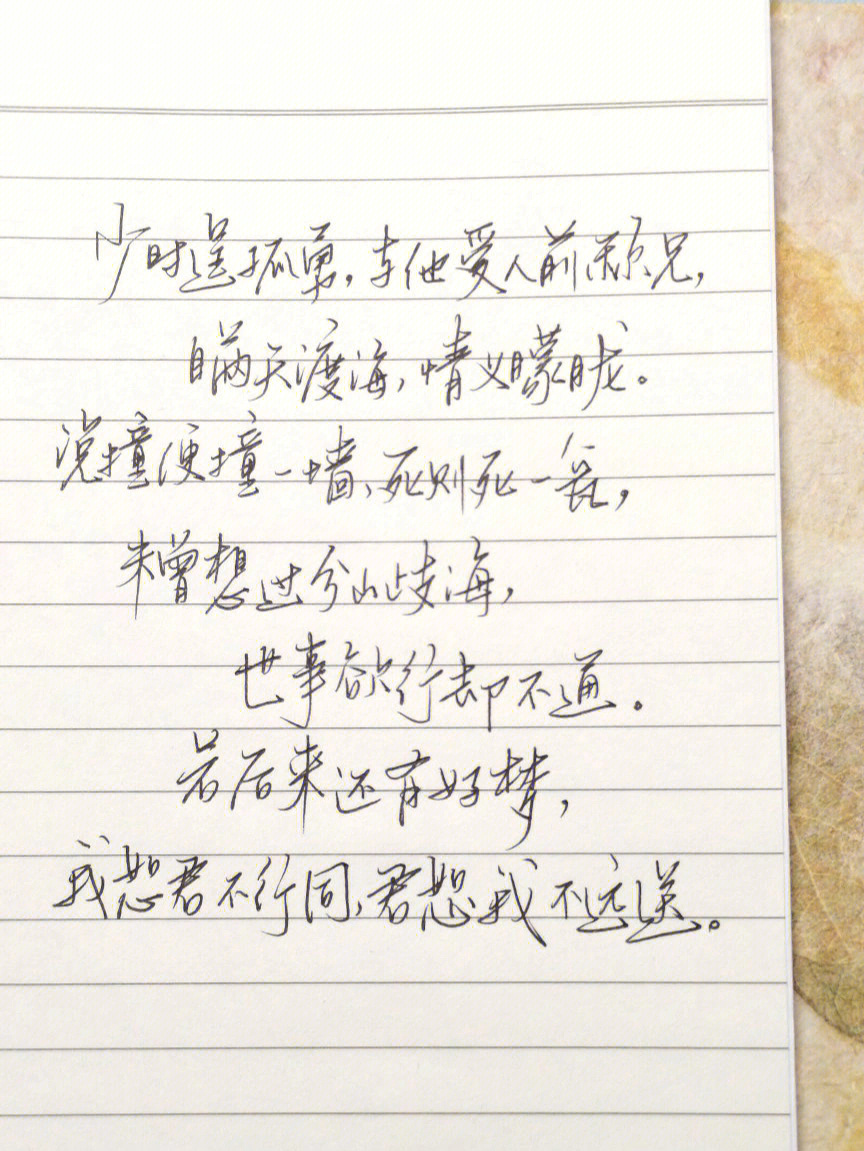 少时逞孤勇,
瞒天渡海,情义朦胧。
说撞便撞一墙、死则死一瓮,
未曾想过分山歧海,
世事欲行却不通。
若后来还有好梦,
我恕君不行同、君恕我不远送。